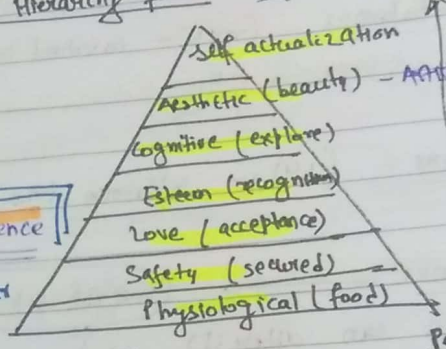 Hierarchy
self actualization
Aesthetic (beauty) -
Cognitive (explore)
Esteem (recognition)
ence
Love (acceptance)
Safety (secured)
Physiological (food)